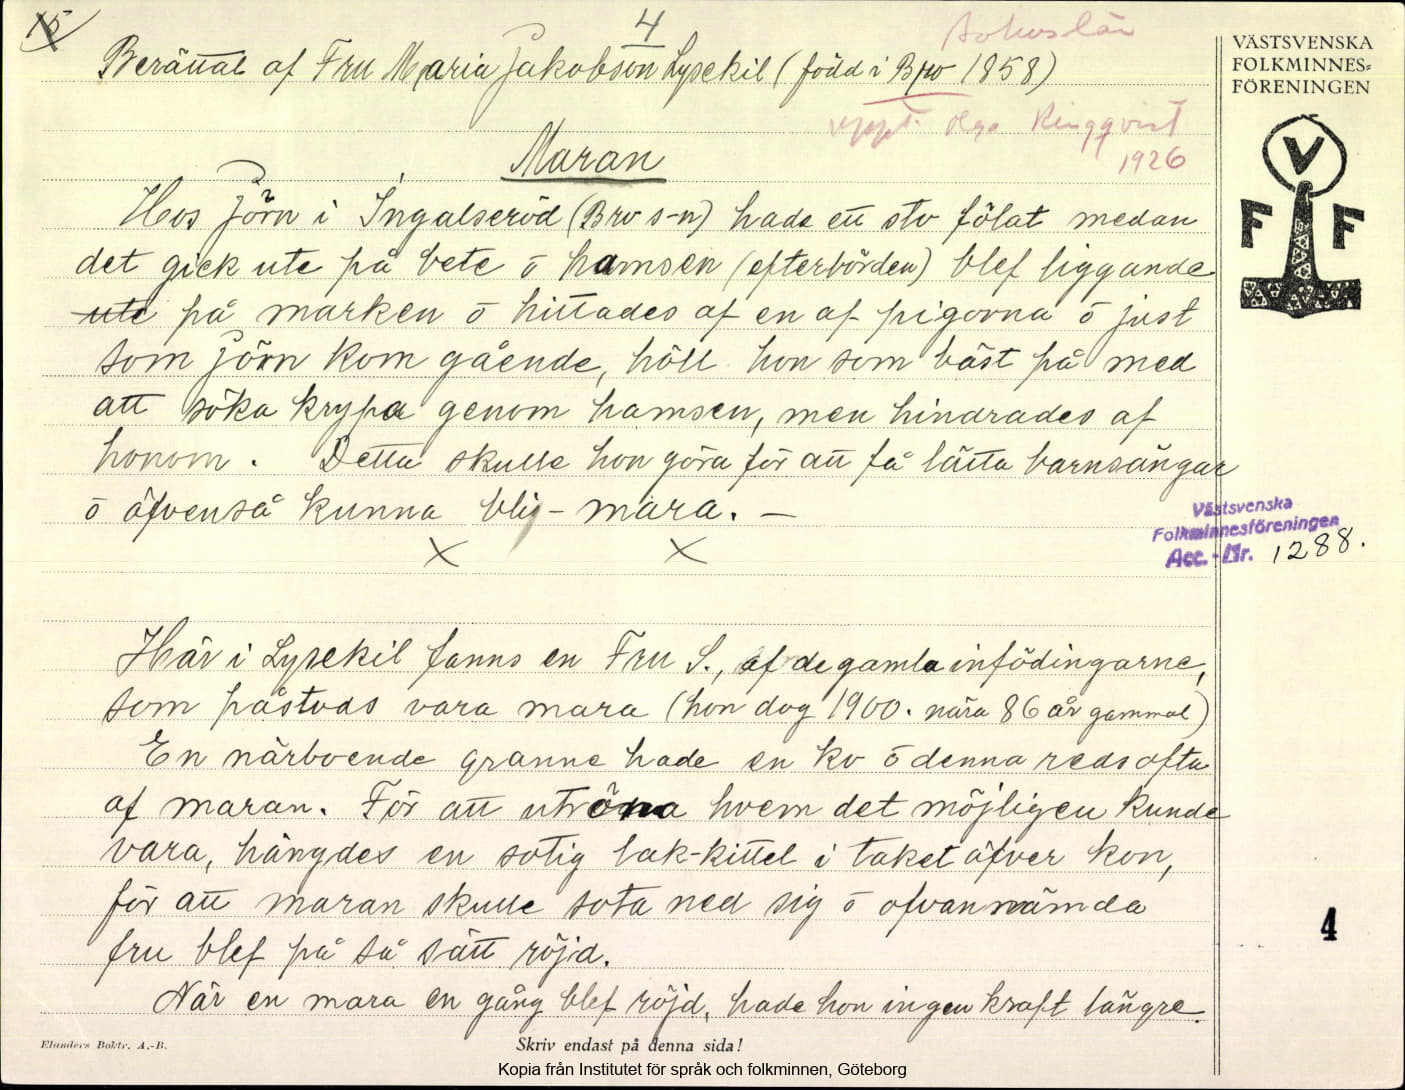 15
4
Bohuslän
Berättat af Fru Maria Jakobson Lysekil (född i Bro 1858)
uppt. Olga Ringqvist
1926
VÄSTSVENSKA
FOLKMINNES=
FÖRENINGEN
V
F F
Maran
Hos Jörn i Ingalseröd (Bro s-n) hade ett sto fölat medan
det gick ute på bete ō hamsen (efterbörden) blef liggande
ute på marken ō hittades af en af pigorna ō just
som Jörn kom gående, höll hon som bäst på med
att söka krypa genom hamsen, men hindrades af
honom. Detta skulle hon göra för att få lätta barnsängar
ō äfvenså kunna bli - mara. —
x x
Västsvenska
Folkminnesföreningen
Acc. - Nr. 1288.
Här i Lysekil fanns en Fru S., af de gamla infödingarne,
som påstods vara mara (hon dog 1900. nära 86 år gammal)
En närboende granne hade en ko ō denna reds ofta
af maran. För att utröna hvem det möjligen kunde
vara, hängdes en sotig lak-kittel i taket äfver kon,
för att maran skulle sota ned sig ō ofvannämda
fru blef på så sätt röjd.
När en mara en gång blef röjd, hade hon ingen kraft längre.
4
Elanders Boktr. A.-B.
Skriv endast på denna sida!
Kopia från Institutet för språk och folkminnen, Göteborg